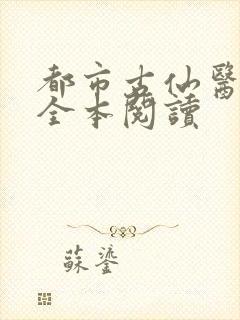 都市古仙醫
全本閱讀
蘇鎏